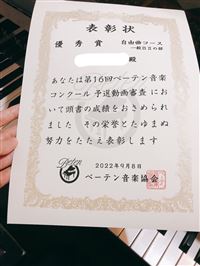 表彰状
優秀賞 自由曲コース
一般BⅡの部
殿
あなたは第16回ベーテン音楽
コンクール予選動画審査にお
いて頭書の成績をおさめられ
ました その栄誉とたゆまぬ
努力をたたえ表彰します
2022年9月8日
ベーテン音楽協会